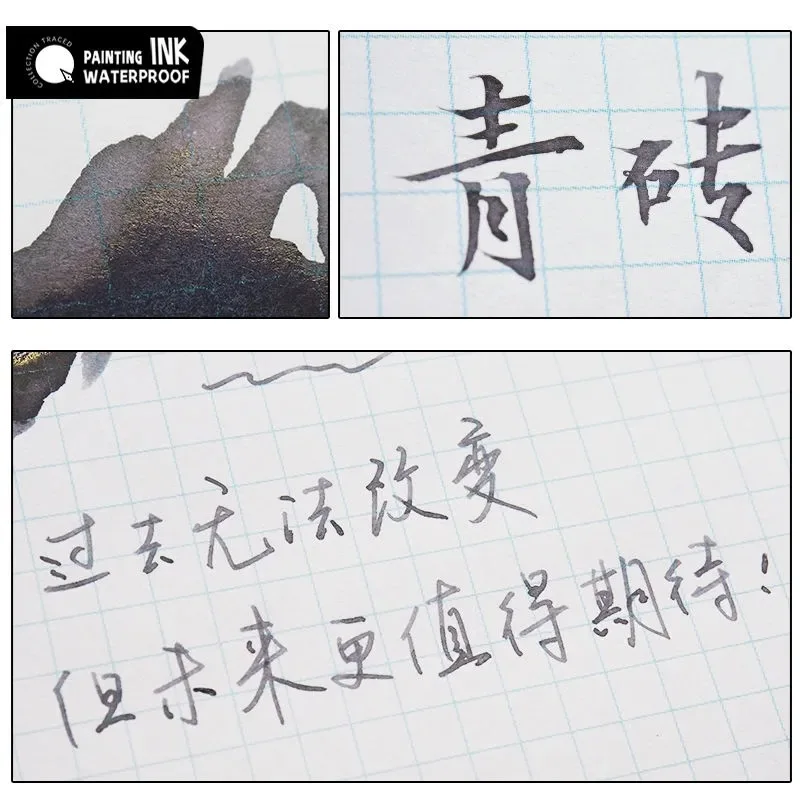 COLLECTION TRACED
PAINTING INK
WATERPROOF
青砖
过去无法改变
但未来更值得期待!